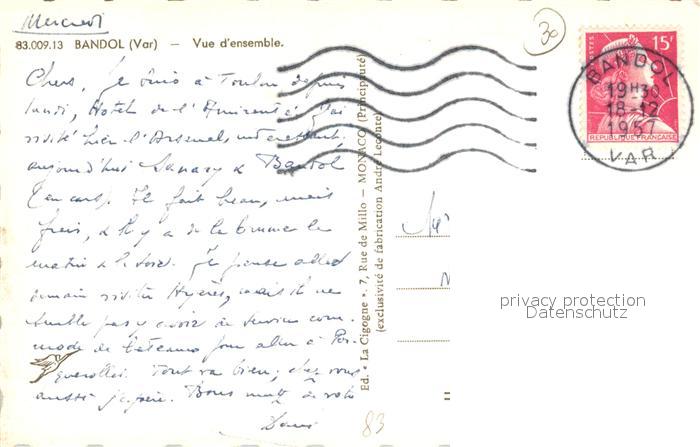 Mercredi
83.009.13 BANDOL (Var) — Vue d'ensemble.
Chers, Je suis à Toulon depuis
lundi, Hotel de l'Amirauté, J'ai
visité hier l'Arsenal,
aujourd'hui Sanary & Bandol
(en car). Il fait beau, mais
frais, & il y a de la brume le
matin & le soir. Je pense aller
demain visiter Hyères, mais il ne
semble pas y avoir de service com-
mode de bateaux pour aller à Por-
querolles. Tout va bien; chez vous
aussi j'espère. Bons
Ed. "La Cigogne", 7, Rue de Millo — MONACO (Principauté)
(exclusivité de fabrication André Leconte)
30
POSTES
15F
REPUBLIQUE FRANÇAISE
BANDOL
19H30
18-12
1957
VAR
privacy protection
Datenschutz
83